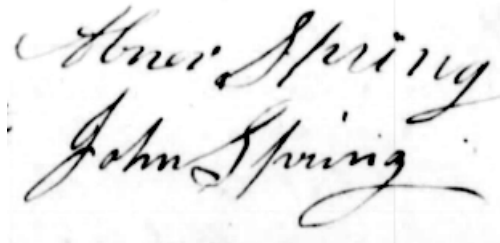 Abner Spring
John Spring